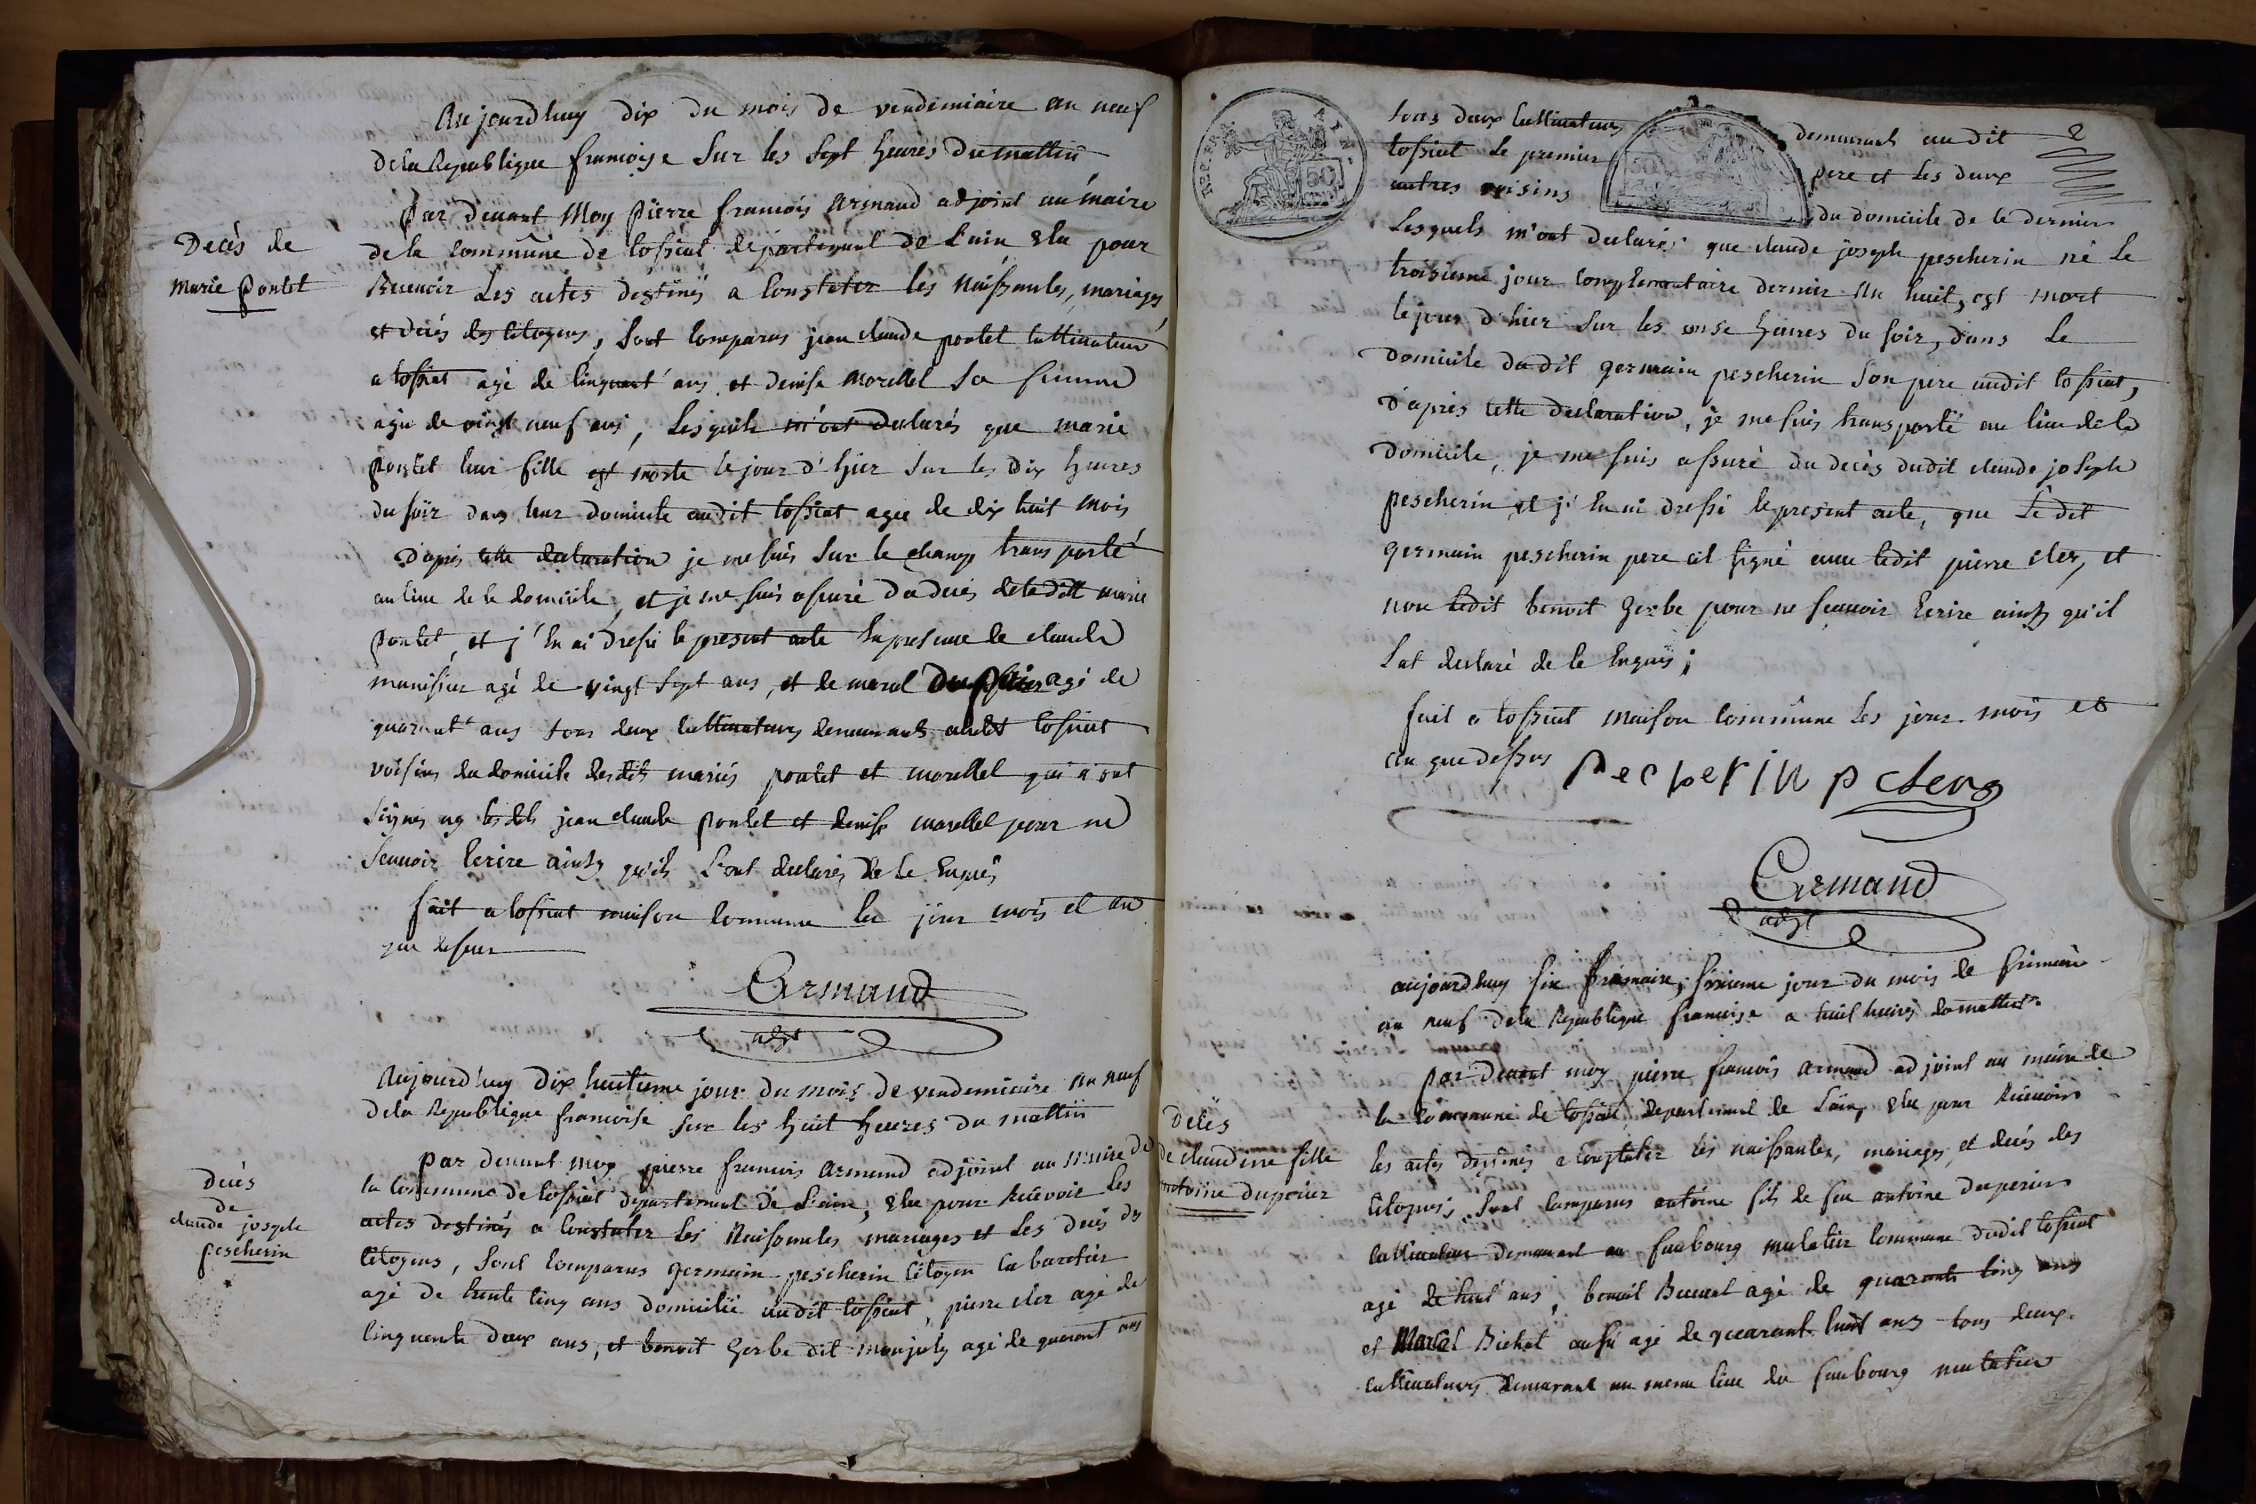 Aujourdhuy dix du mois de vendemiaire an neuf
de la Republique francoise sur les sept heures du mattin
par devant Moy pierre francois armand adjoint au maire
Decès de
marie poulet
de la commune de tossiat departement de l'ain elu pour
Recevoir les actes destinés a constater les naissances, mariages
et decés des citoyens, sont comparus jean claude poulet cultivateur
a tossiat agé de cinquant' ans et denise morellel sa femme
agée de vingt neuf ans, lesquels m'ont declarés que marie
poulet leur fille est morte le jour d'hier sur les dix heures
du soir dans leur domicile audit tossiat agee de dix huit mois
d'apres cette declaration je me suis sur le champ transporté
au lieu de le domicile, et je me suis assuré du decés de ladite marie
poulet, et j'en ai dressé le present acte en presence de claude
manissier agé de vingt sept ans, et de marcel Duperier agé de
quarant' ans tous deux cultivateurs demeurants audit tossiat
voisins du domicile desdits mariés poulet et morellel qui n'ont
signés ny lesdits jean claude poulet et denise morellel pour ne
scavoir ecrire ainsy qu'ils l'ont declarés de le enquis
fait a tossiat maison commune les jour mois et an
que dessus
Armand
adjt
Aujourd'huy dix huitieme jour du mois de vendemiaire an neuf
de la Republique francoise sur les huit heures du mattin
par devant moy pierre francois armand adjoint au maire de
decés
de
claude joseph
pescherin
la commune de tossiat departement de l'ain, elu pour recevoir les
actes destinés a constater les Naissances mariages et les decés des
citoyens, sont comparus germain pescherin citoyen cabaretier
agé de trente cinq ans domicilié audit tossiat, pierre cler agé de
cinquante deux ans, et benoit gerbe dit monjoly agé de quarant ans
tous deux cultivateurs demeurants audit 2
tossiat le premier pere et les deux
autres voisins du domicile de le dernier
Lesquels m'ont declarés que claude joseph pescherin né le
troisieme jour complementaire dernier an huit, est mort
le jour d'hier sur les onse heures du soir, dans le
domicile dudit germain pescherin son pere audit tossiat,
d'apres cette declaration, je me suis transporté au lieu de le
domicile, je me suis assuré du decès dudit claude joseph
pescherin et j'en ai dressé le present acte, que le dit
germain pescherin pere at signé avec ledit pierre cler, et
non ledit benoit gerbe pour ne scavoir ecrire ainsy qu'il
l'at declaré de le enquis;
fait a tossiat maison commune les jour mois et
an que dessus pecherin p clerc
Armand
adjt
aujourdhuy six frimaire, sixieme jour du mois de frimaire
an neuf de la Republique francoise a huit heures du mattin
par devant moy pierre francois armand adjoint au maire de
Decès
de claudine fille
antoine duperier
la commune de tossiat departement de l'ain, elu pour recevoir
les actes destinés a constater les naissances, mariages, et decés des
citoyens, sont comparus antoine fils de feu antoine duperier
cultivateur demeurant au faubourg mulatier commune dudit tossiat
agé de huit ans, benoit Buevent agé de quarante cinq ans
et Marcel Bichat aussi agé de quarant huit ans tous deux
cultivateurs demeurant au meme lieu du faubourg mulatier